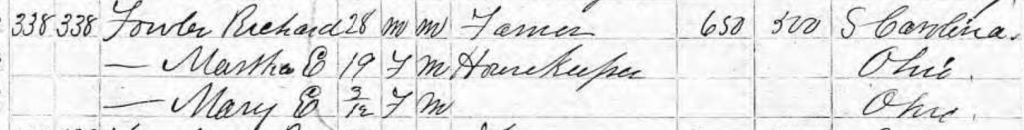 338 338 Fowler Richard 28 m m Farmer 650 500 S Carolina.
— Martha E 19 F M Housekeeper Ohio.
— Mary E 2/12 F M Ohio.